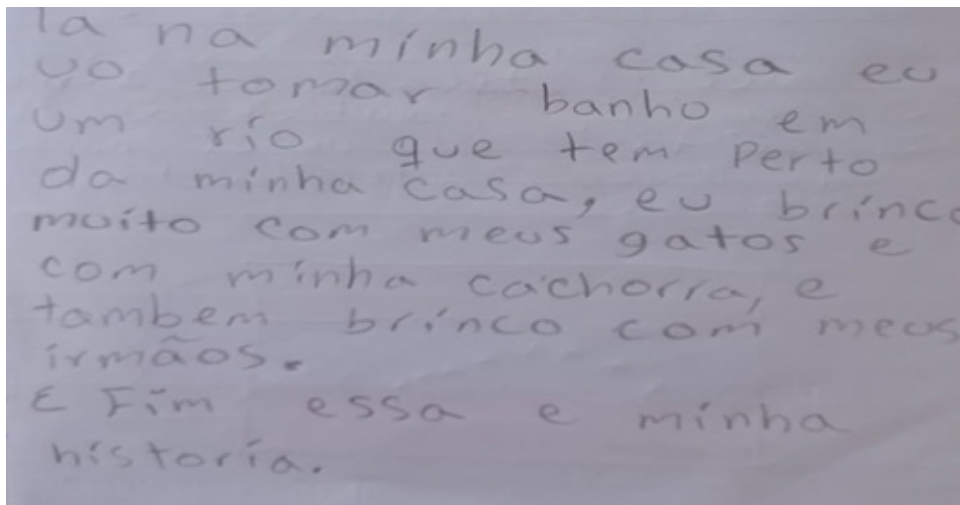 la na minha casa eu
vo tomar banho em
um rio que tem perto
da minha casa, eu brinco
muito com meus gatos e
com minha cachorra, e
tambem brinco com meus
irmãos.
E Fim essa e minha
historia.